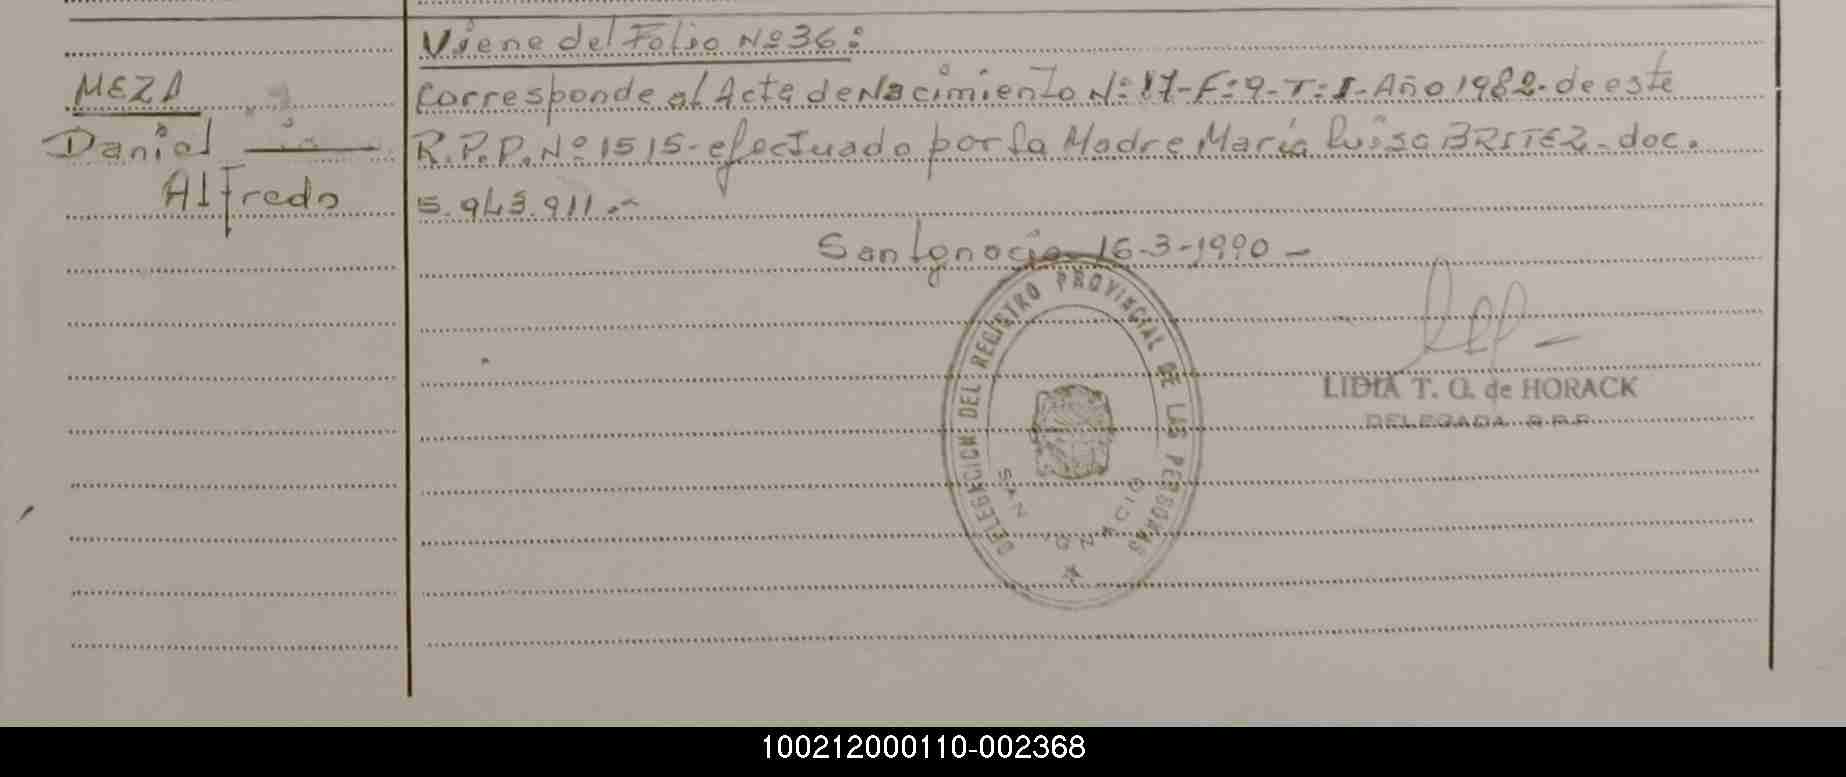 Viene del Folio Nº 36:
MEZA
Corresponde al Acta de Nacimiento Nº: 17-F: 9-T: I-Año 1982-de este
Daniel
R.P.P. Nº 1515-efectuado por la Madre María Luisa BRITEZ-doc.
Alfredo
5.943.911.-
San Ignacio 16-3-1990-
DELEGACION DEL REGISTRO PROVINCIAL DE LAS PERSONAS
SAN IGNACIO
LIDIA T. G. de HORACK
DELEGADA R.P.P.
100212000110-002368